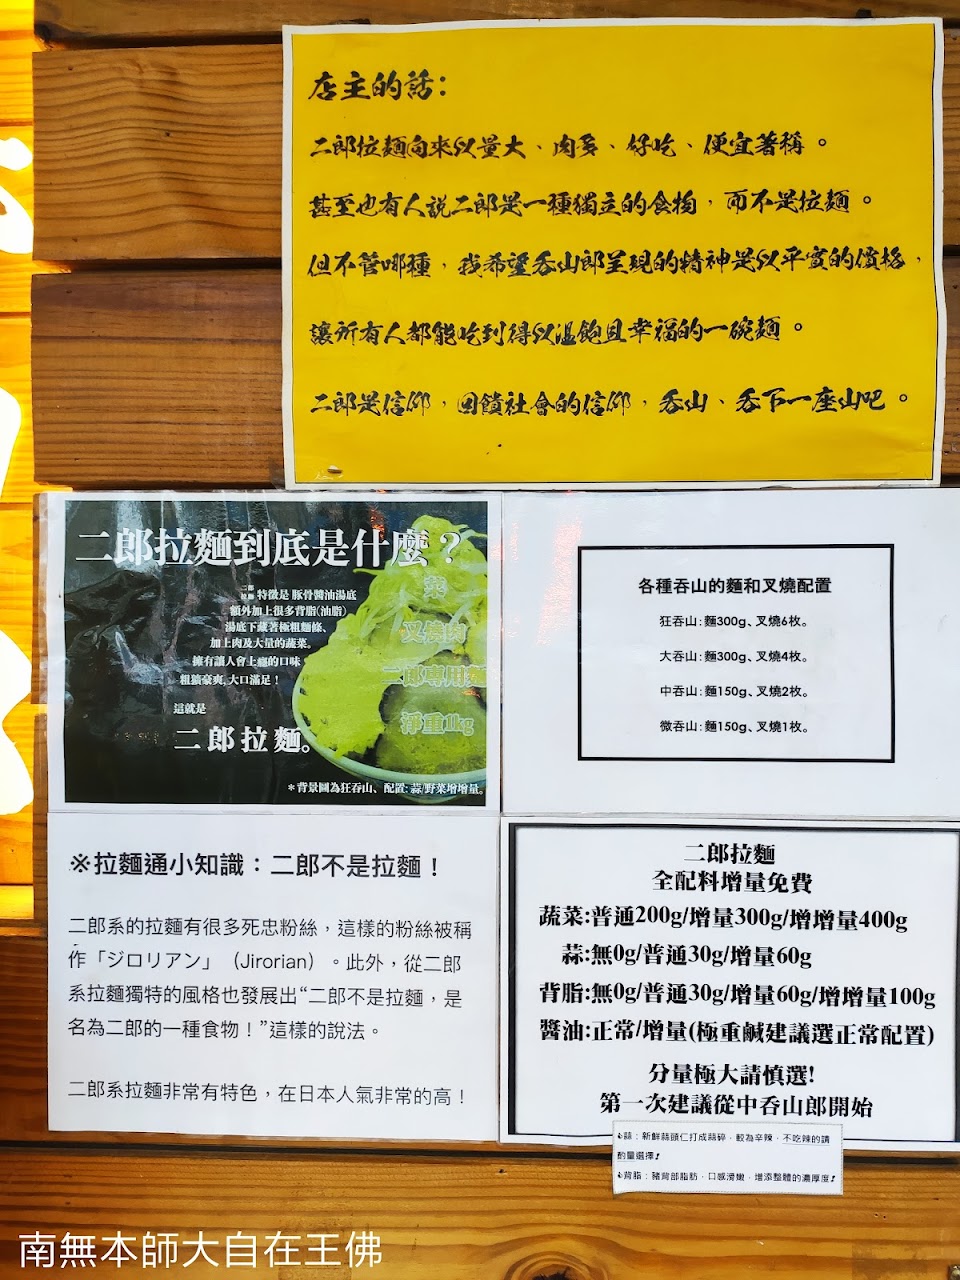 店主的話：
二郎拉麵向來以量大、肉多、好吃、便宜著稱。
甚至也有人說二郎是一種獨立的食物，而不是拉麵。
但不管哪種，我希望吞山郎呈現的精神是以平實的價格，
讓所有人都能吃到得以溫飽且幸福的一碗麵。
二郎是信仰，回饋社會的信仰，吞山、吞下一座山吧。
二郎拉麵到底是什麼？
二郎拉麵 特徵是 豚骨醬油湯底
額外加上很多背脂(油脂)
湯底下藏著極粗麵條、
加上肉及大量的蔬菜。
擁有讓人會上癮的口味
粗獷豪爽,大口滿足！
這就是
二郎拉麵。
菜
叉燒肉
二郎專用麵
淨重1kg
＊背景圖為狂吞山、配置:蒜/野菜增增量。
各種吞山的麵和叉燒配置
狂吞山：麵300g、叉燒6枚。
大吞山：麵300g、叉燒4枚。
中吞山：麵150g、叉燒2枚。
微吞山：麵150g、叉燒1枚。
※拉麵通小知識：二郎不是拉麵！
二郎系的拉麵有很多死忠粉絲，這樣的粉絲被稱
作「ジロリアン」（Jirorian）。此外，從二郎
系拉麵獨特的風格也發展出“二郎不是拉麵，是
名為二郎的一種食物！”這樣的說法。
二郎系拉麵非常有特色，在日本人氣非常的高！
二郎拉麵
全配料增量免費
蔬菜:普通200g/增量300g/增增量400g
蒜:無0g/普通30g/增量60g
背脂:無0g/普通30g/增量60g/增增量100g
醬油:正常/增量(極重鹹建議選正常配置)
分量極大請慎選!
第一次建議從中吞山郎開始
蒜：新鮮蒜頭仁打成蒜碎，較為辛辣，不吃辣的請
酌量選擇！
背脂：豬背部脂肪，口感滑嫩，增添整體的濃厚度！
南無本師大自在王佛